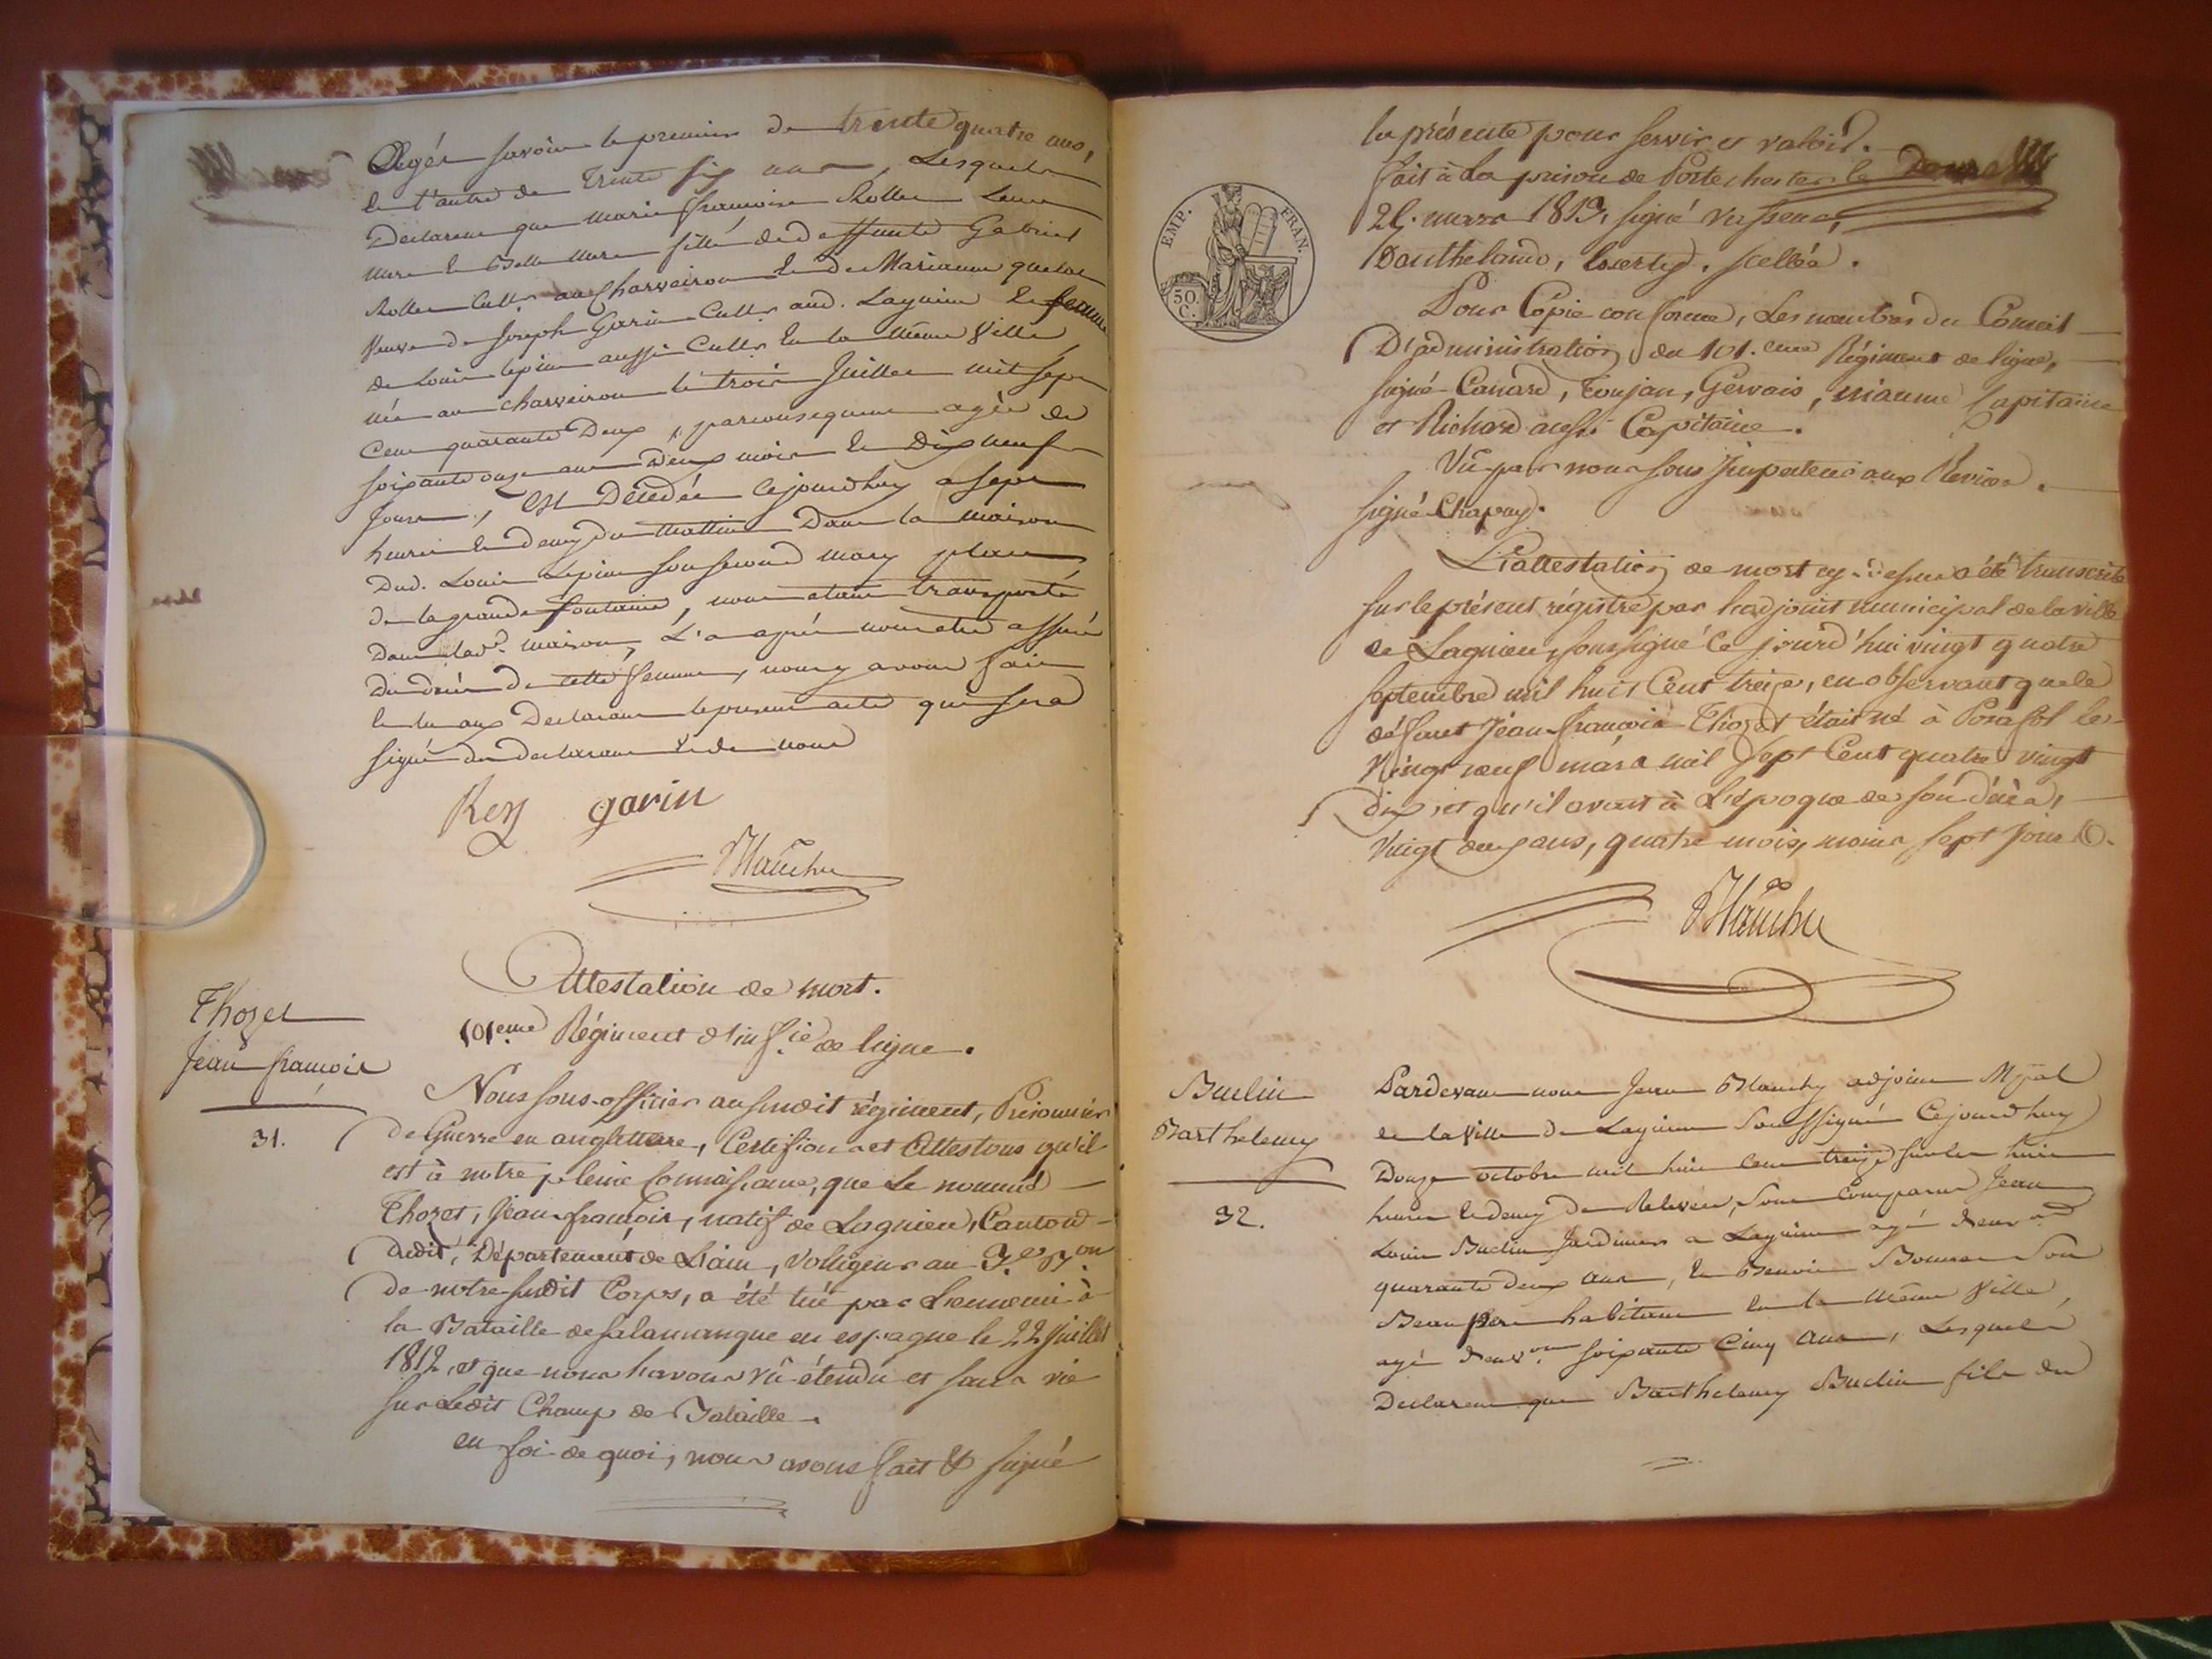 Agés savoir le premier de trente quatre ans,
et l'autre de trente six ans, Lesquels
Declarent que marie françoise Rollet Leur
mere et Belle mere fille de deffunts Gabriel
Rollet Cultr au Charveiron et de Marianne
Veuve de Joseph Garin Cultr aud. Lagnieu et femme
de Louis lepine aussi Cultr en la même Ville
née au charveiron le trois Juillet mil sept
Cent quarante Deux, par consequent agée de
soixante onze ans Deux mois et Dix neuf
Jours, est Décédée Cejourdhuy a sept
heures et demy du mattin Dans la maison
Dud. Louis Lepine son second mary place
de la grande fontaine, nous étant transporté
Dans lad.e maison, & après nous être assuré
Du décès de cette femme, nous y avons fait
et lu aux Declarans le present acte qui sera
signé des declarans & de nous
Rey garin
Blanchy
Attestation de mort.
101eme Régiment d'inf.ie de ligne.
Thozet
Jean françois
31.
Nous sous-officier au susdit régiment, Prisonnier
de Guerre en angleterre, Certifions et Attestons qu'il
est à notre pleine Connaissance, que Le nommé
Thozet, Jean françois, natif de Lagnieu, Canton
dudit, Département de L'ain, Voltigeur au 3.e B.on
de notre susdit Corps, a été tué par L'ennemi à
la Bataille de salamanque en espagne le 22 Juillet
1812, et que nous l'avons vû étendu et sans vie
sur Ledit Champ de Bataille.
en foi de quoi, nous avons fait & signé
la présente pour servir et valoir.
fait à La prison de Portchester le
25. mars 1813, signé
scellés.
EMP. FRAN.
50.
C.
Pour Copie conforme, Les membres du Conseil
D'administration du 101.eme Régiment de ligne,
signé Canard, Toujan, Gervais, miaume Capitaine
et Richard aussi Capitaine.
Vû par nous sous Inspecteur aux Revues.
signé Chapuy.
L'attestation de mort cy-dessus a été transcrite
sur le présent régistre par L'adjoint municipal de la ville
de Lagnieu, soussigné Ce jourd'hui vingt quatre
septembre mil huit Cent treize, en observant que le
défunt Jean françois Thozet était né à Posafol le
Vingt neuf mars mil Sept Cent quatre vingt
dix, et qu'il avait à L'époque de son décès,
Vingt deux ans, quatre mois, moins sept Jours.
Blanchy
Buclin
Barthelemy
32.
Pardevant nous Jean Blanchy adjoint Mpal
de la Ville de Lagnieu Soussigné Cejourdhuy
Douze octobre mil huit cent treize sur les huit
heures et demy De Relevée, Sont Comparus Jean
Louis Buclin Jardinier a Lagnieu agé d'env.on
quarante deux ans, et Benoit Son
Beau pere habitans en la même Ville,
agé d'env.on soixante Cinq ans, Lesquels
Declarent que Barthelemy Buclin fils du